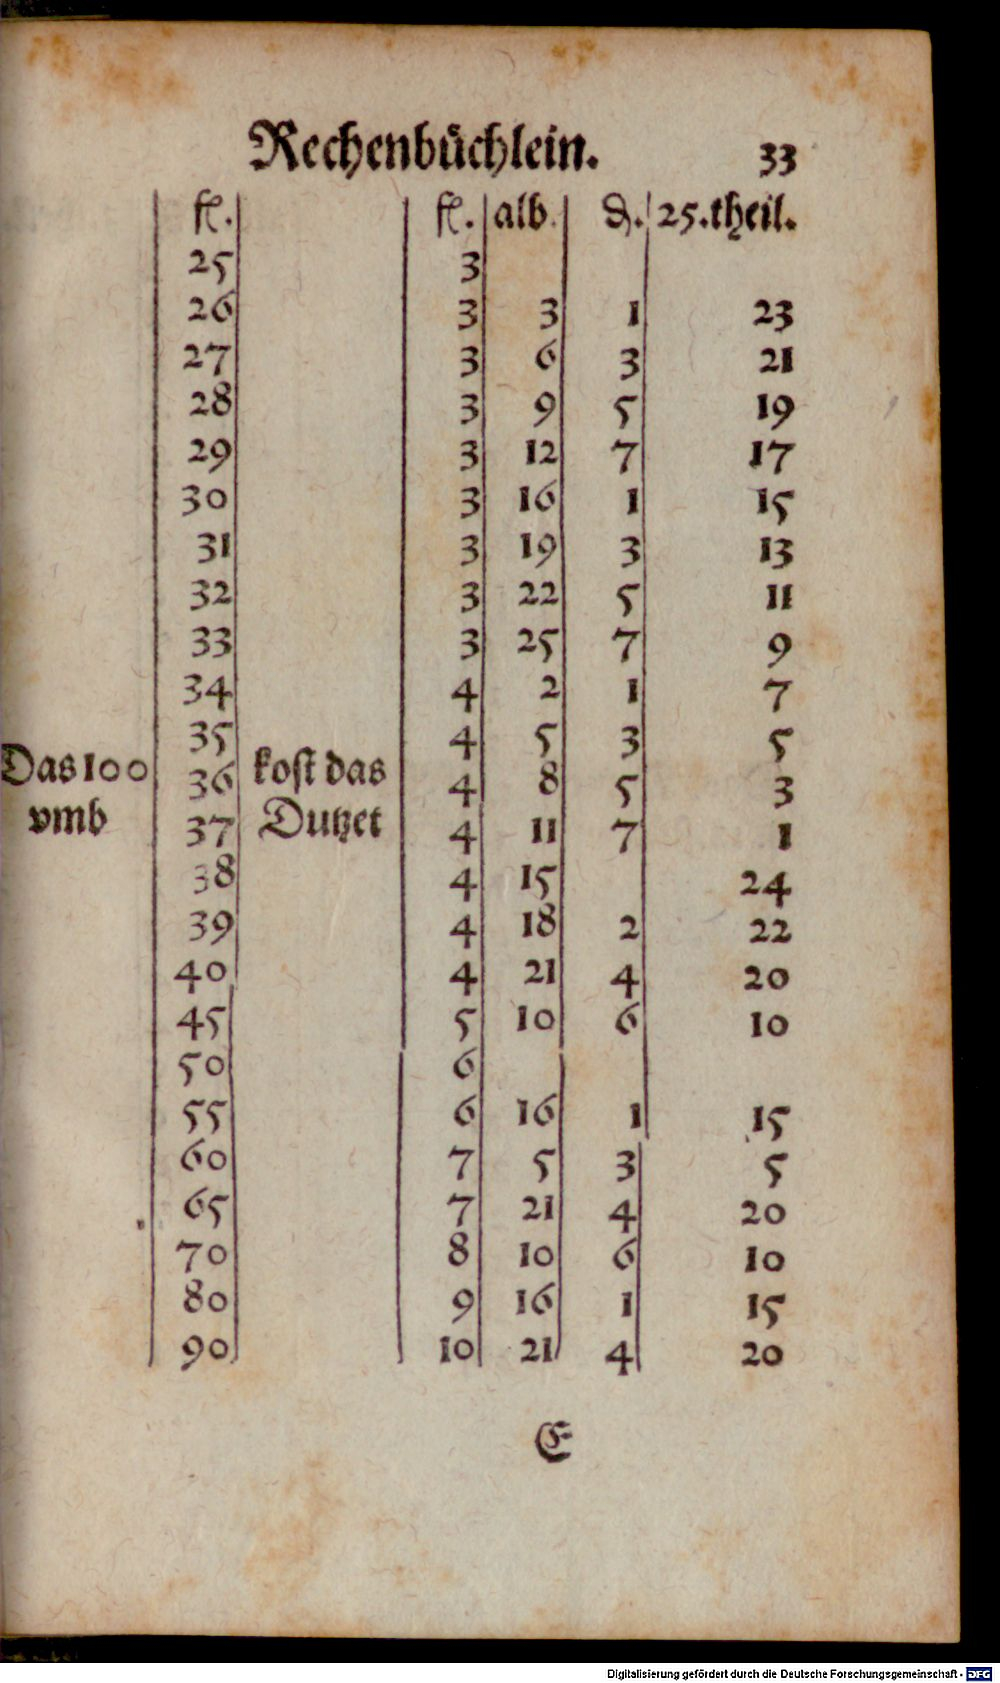 Rechenbüchlein. 33
fl. fl. alb. ₰. 25.theil.
25 3
26 3 3 1 23
27 3 6 3 21
28 3 9 5 19
29 3 12 7 17
30 3 16 1 15
31 3 19 3 13
32 3 22 5 11
33 3 25 7 9
34 4 2 1 7
35 4 5 3 5
Das 100 kost das
36 4 8 5 3
vmb 37 Dutzet 4 11 7 1
38 4 15 24
39 4 18 2 22
40 4 21 4 20
45 5 10 6 10
50 6
55 6 16 1 15
60 7 5 3 5
65 7 21 4 20
70 8 10 6 10
80 9 16 1 15
90 10 21 4 20
E
Digitalisierung gefördert durch die Deutsche Forschungsgemeinschaft - DFG